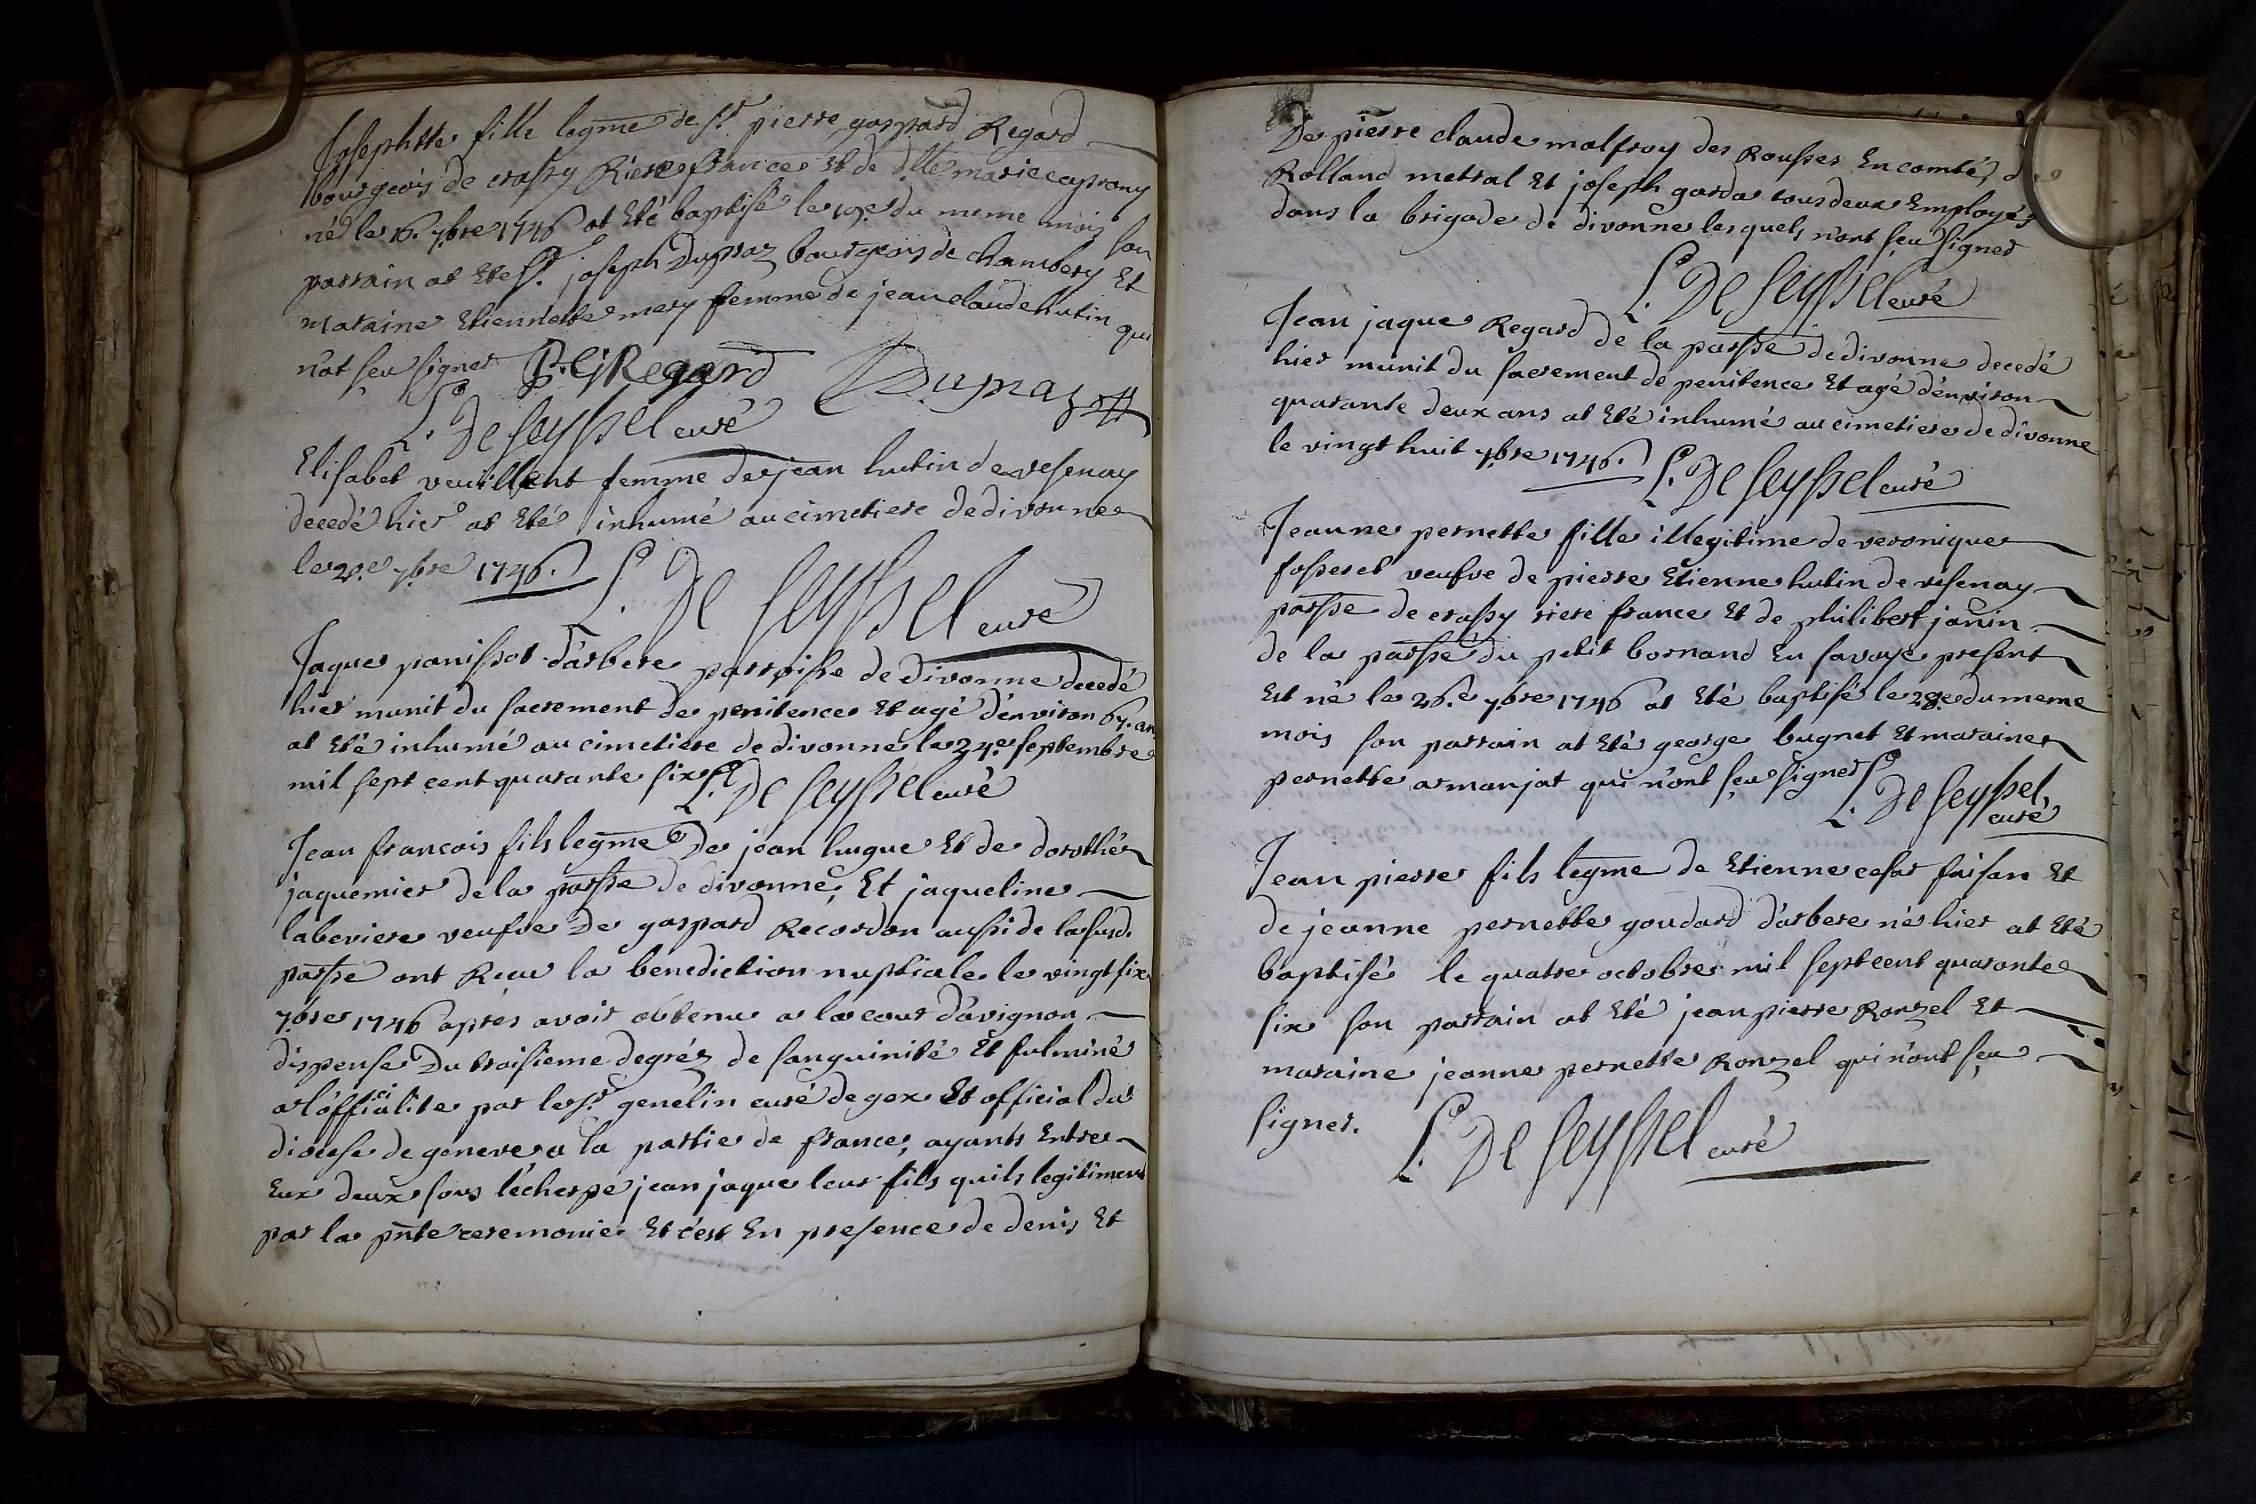 Josephtte fille legme de Sr. pierre gaspard Regard
bourgeois de crassy Riere france et de dlle marie
né le 16. 7bre 1746 at Eté baptisé le 19e. du meme mois son
parrain at Ete Sr. joseph Dupraz bourgeois de chambery Et
maraine Etiennette mery femme de jean claude hutin qui
n'at sçu signer P. G Regard Dupraz
L. De Seyssel curé
Elisabet vuillent femme de jean hutin de vesenay
decedé hier at Eté inhumé au cimetiere de divonne
le 7bre 1746. L. De Seyssel curé
Jaques panissod d'arbere parroisse de divonne decedé
hier munit du sacrement de penitence Et agé d'environ 67. an
at Eté inhumé au cimetiere de divonne le 24e. septembre
mil sept cent quarante six L. De Seyssel curé
Jean francois fils legme De jean hugue Et de dorothée
jaquemier de la parsse de divonne, Et jaqueline
labeviere veufve De gaspard Recordon aussi de la susd.
parsse ont Recu la benediction nuptiale le vingt six
7bre 1746 apres avoir obtenu a la cour d'avignon
dispense Du troisieme degréz de sanguinité Et fulminé
a l'officialite par le Sr. genelin curé de gex Et official du
diocese de geneve a la partie de france, ayants Entre
Eux deux sous l'écherpe jean jaque leur fils quils legitiment
par la pnte ceremonie Et c'est En presence de denis Et
De pierre claude malfroy des Rousses En comté, de
Rolland metral Et joseph garda tous deux Employés
dans la brigade de divonne lesquels n'ont sçu signer
L. De Seyssel curé
Jean jaque Regard de la parsse de divonne decedé
hier munit du sacrement de penitence Et agé d'environ
quarante deux ans at Eté inhumé au cimetiere de divonne
le vingt huit 7bre 1746. L. De Seyssel curé
Jeanne pernette fille illegitime de veronique
fosseret veufve de pierre Etienne hutin de vesenay
parsse de crassy riere france Et de philibert janin
de la parsse du petit bornand En savoye present
Est né le 26.e 7bre 1746 at Eté baptisé le 28.e du meme
mois son parrain at Eté george bugnet Et maraine
pernette armanjat qui n'ont sçu signer L. De Seyssel
curé
Jean pierre fils legme de Etienne cesar faisan Et
de jeanne pernette goudard d'arbere né hier at Eté
baptisé le quatre octobre mil sept cent quarante
six son parrain at Eté jean pierre Ronzel Et
maraine jeanne pernette Ronzel qui n'ont sçu
signer. L. De Seyssel curé